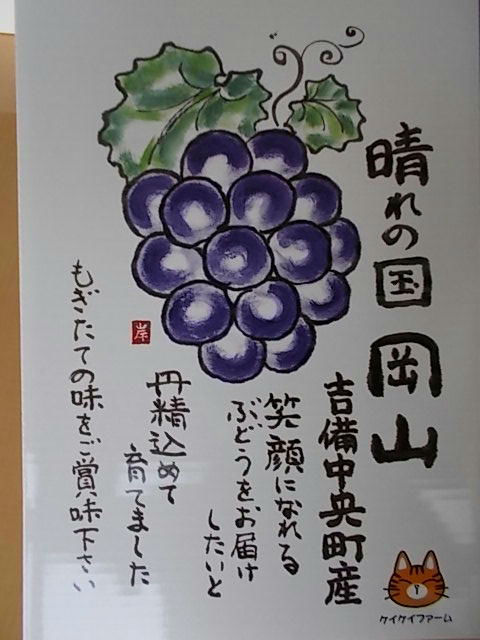 晴れの国 岡山
吉備中央町産
笑顔になれる
ぶどうをお届け
したいと
丹精込めて
育てました
もぎたての味をご賞味下さい
岸
ケイケイファーム